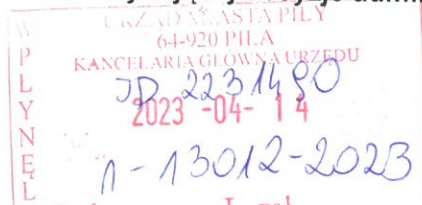 URZĄD MIASTA PIŁY
64-920 PIŁA
KANCELARIA GŁÓWNA URZĘDU
JD 2231490
2023 -04- 14
1-13012-2023
WPŁYNĘŁ